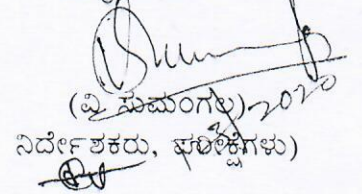 (ವಿ. ಸುಮಂಗಲ)
ನಿರ್ದೇಶಕರು, ಪರೀಕ್ಷೆಗಳು)